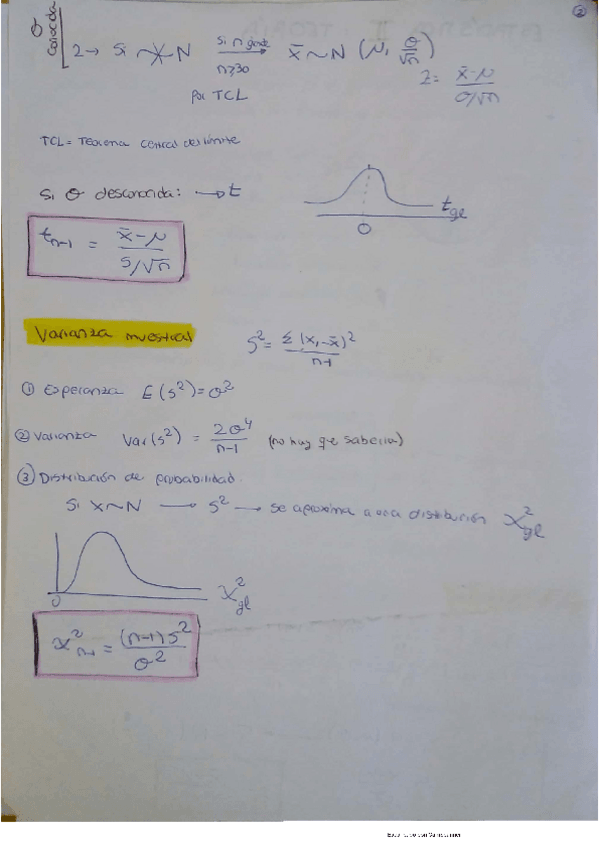 ②
σ conocida
2 → Si X≁N si n grande n≥30 → x̄ ~ N (μ, σ/√n)
Por TCL
Z = (x̄-μ)/(σ/√n)
TCL = Teorema central del límite
Si σ desconocida: → t
t gl
0
t n-1 = (x̄-μ)/(S/√n)
Varianza muestral S² = Σ(xᵢ-x̄)²/(n-1)
① Esperanza E(s²)=σ²
② Varianza Var(s²) = 2σ⁴/(n-1) (no hay que saberla)
③ Distribución de probabilidad.
Si X~N → S² → se aproxima a una distribución χ² gl
0
χ² gl
χ² n-1 = (n-1)S²/σ²